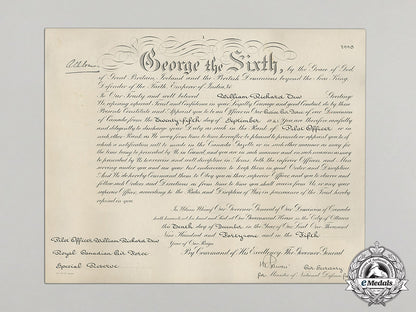 George the Sixth, by the Grace of God
of Great Britain, Ireland and the British Dominions beyond the Seas King,
Defender of the Faith, Emperor of India &c
To Our Trusty and well beloved William Richard Greeting
We reposing especial Trust and Confidence in your Loyalty Courage and good Conduct do by these
Presents Constitute and Appoint you to be an Officer in Our Air Force of our Dominion
of Canada from the Twenty-fifth day of September 1941 You are therefore carefully
and diligently to discharge your Duty as such in the Rank of Pilot Officer or in
such other Rank as We may from time to time hereafter be pleased to promote or appoint you to of
which a notification will be made in the Canada Gazette or in such other manner as may for
the time being be prescribed by Us in Council and you are in such manner and on such occasions as may
be prescribed by Us to exercise and well discipline in Arms both the inferior Officers and Men
serving under you and use your best endeavours to keep them in good Order and Discipline
And We do hereby Command them to Obey you as their superior Officer and you to observe and
follow such Orders and Directions as from time to time you shall receive from Us or any your
superior Officer, according to the Rules and Discipline of War in pursuance of the Trust hereby
reposed in you
In Witness Whereof Our Governor General of Our Dominion of Canada
hath hereunto set his hand and Seal at Our Government House in the City of Ottawa
the day of in the Year of Our Lord One Thousand
Nine Hundred and Forty-one and in the Fifth
Year of Our Reign
By Command of His Excellency The Governor General
Pilot Officer William Richard
Royal Canadian Air Force
Special Reserve
for Minister of National Defence